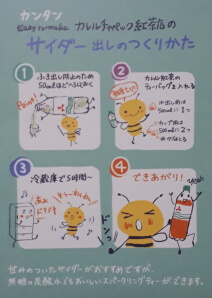 カンタン
Easy to make カレルチャペック紅茶店の
サイダー出しのつくりかた
1
ふき出し防止のため
50mlほどへらしておく
Point!
2
カレル紅茶の
ティーバッグを入れる
水出し用は
500mlに1つ
カップ用は
500mlに2つ
3
冷蔵庫で5時間〜
4
できあがり!
Yeah
ドンっ
甘みのついたサイダーがおすすめですが、
無糖の炭酸水でもおいしいスパークリングティーができます。